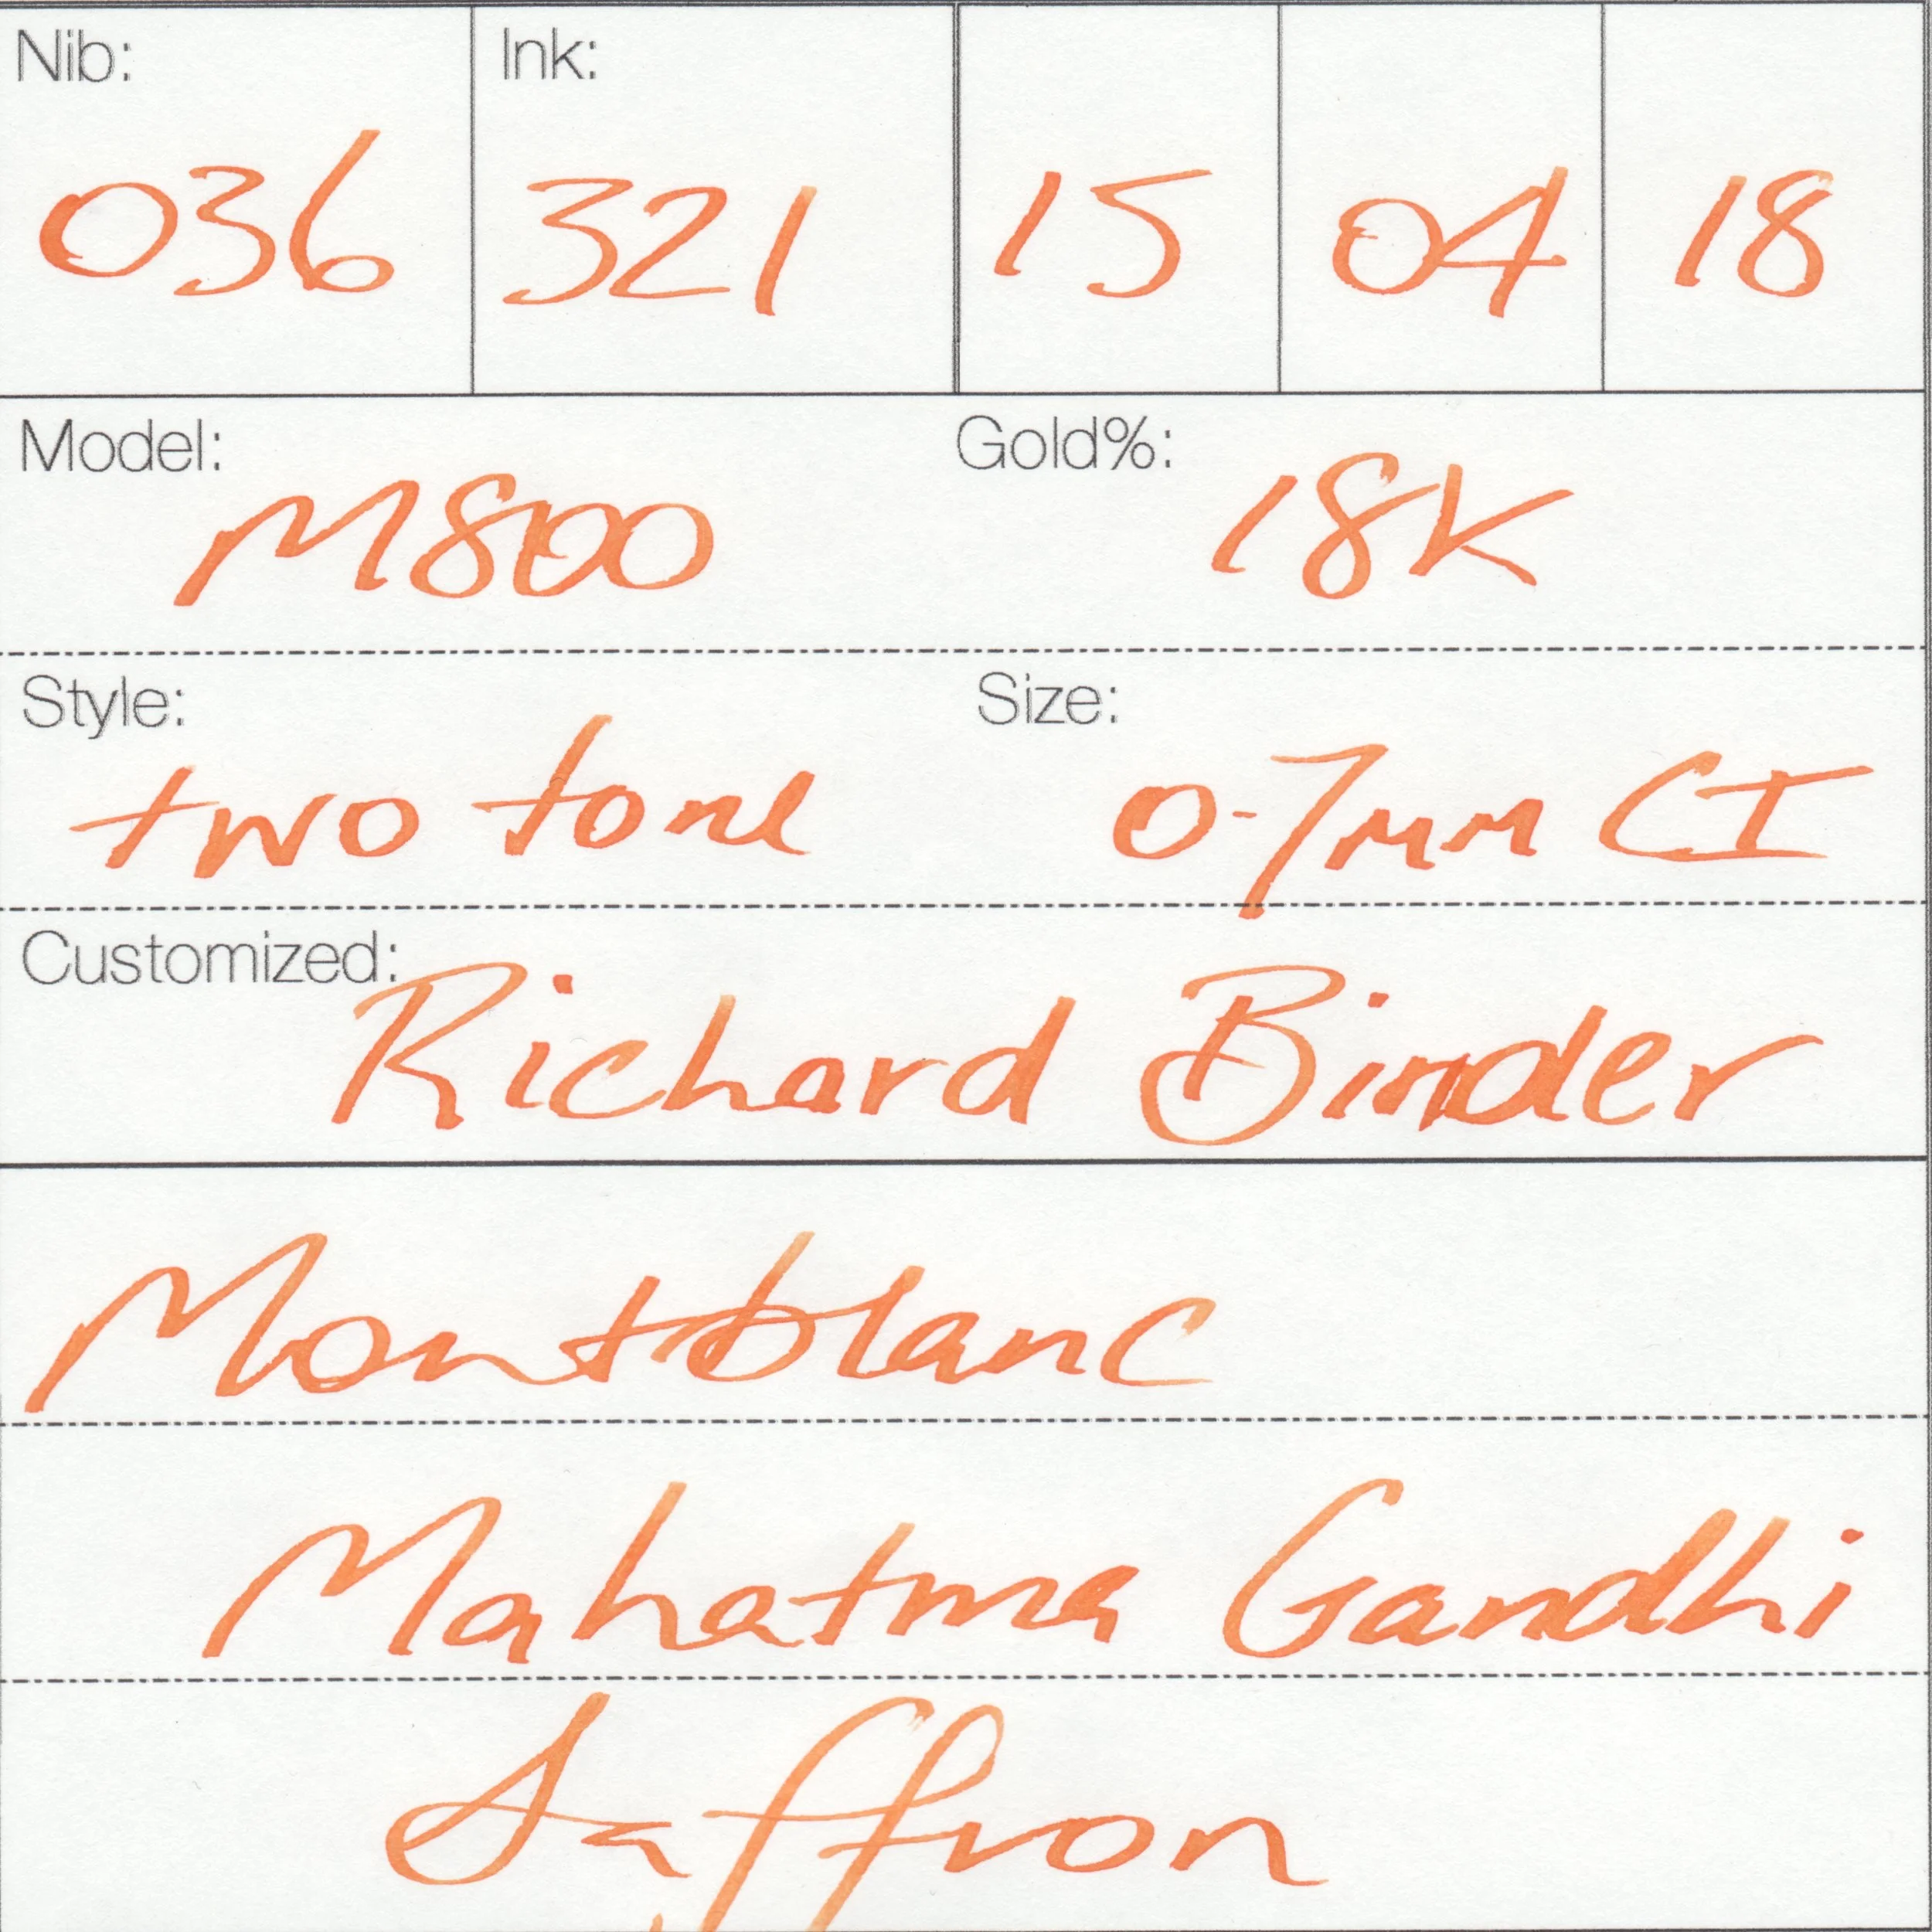 Nib: Ink:
036 321 15 04 18
Model: Gold%:
M800 18K
Style: Size:
two tone 0.7mm CI
Customized:
Richard Binder
Montblanc
Mahatma Gandhi
Saffron